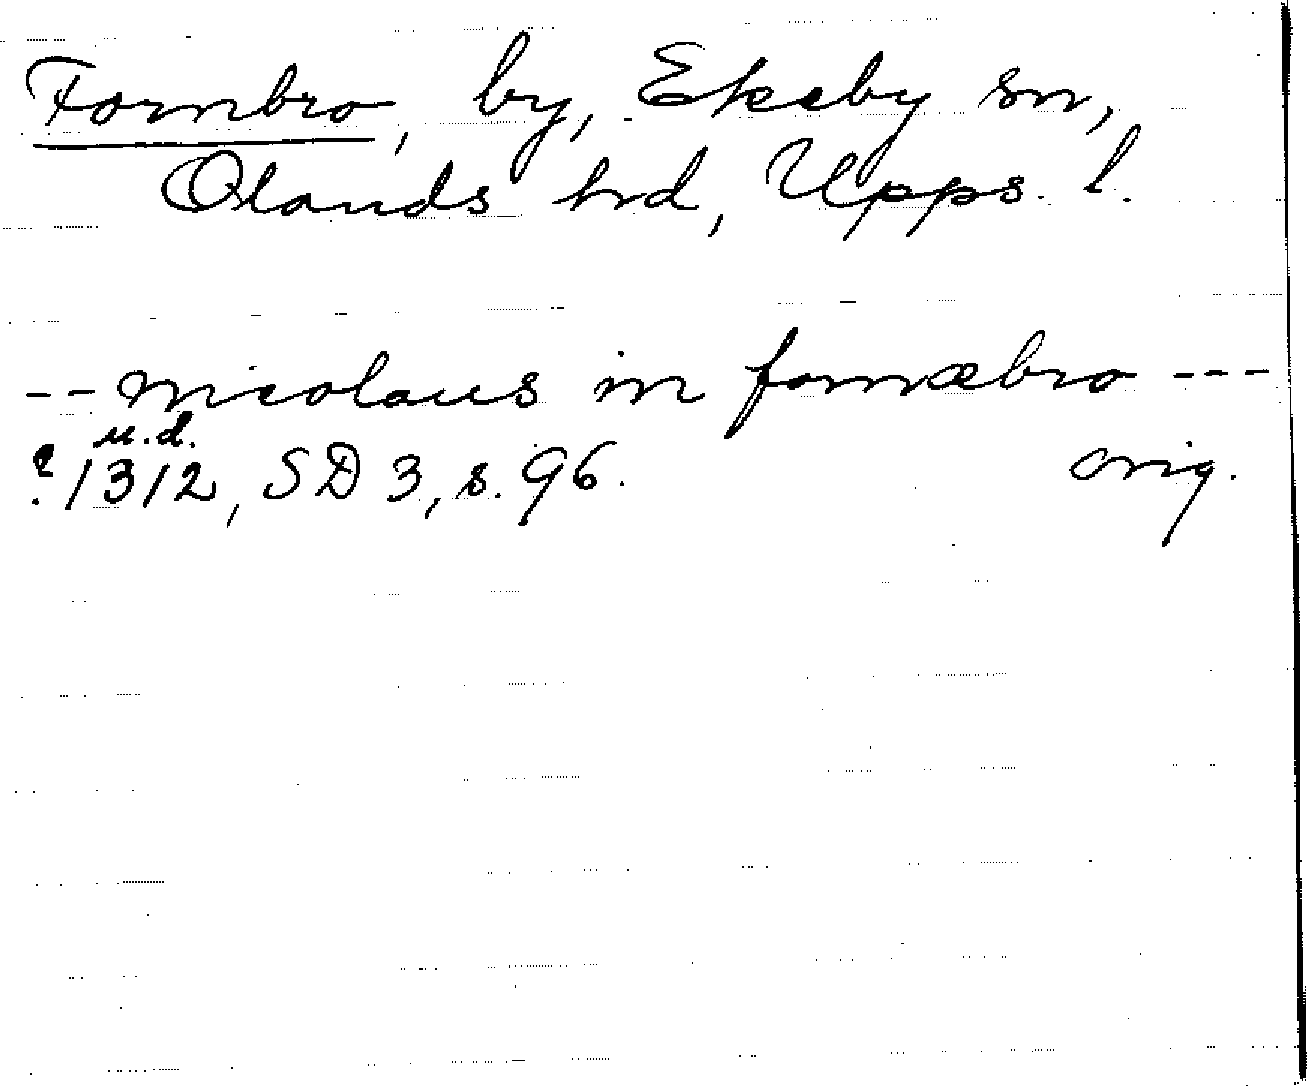 Fornbro, by, Ekeby sn,
Olands hrd, Upps. l.
-- Nicolaus in fornæbro ---
u.d.
? 1312, SD 3, s. 96. orig.